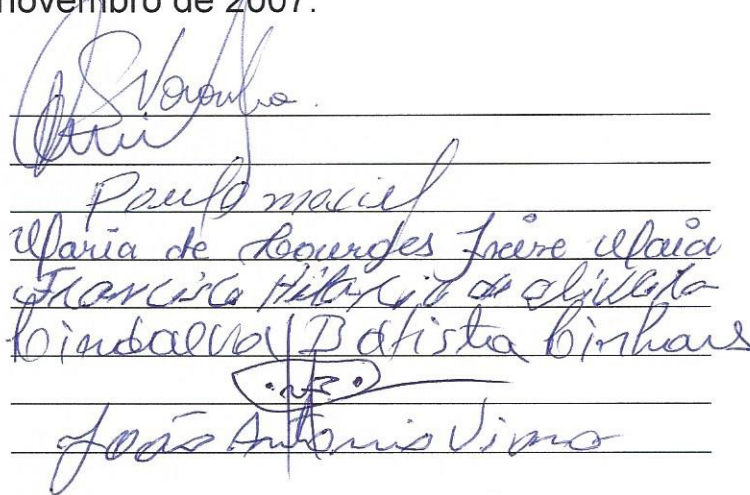 novembro de 2007.
Paulo maciel
Maria de Lourdes Freire Maia
Francisco Hilario de oliveira
Lindalva Batista Linhares
João Antonio Viana